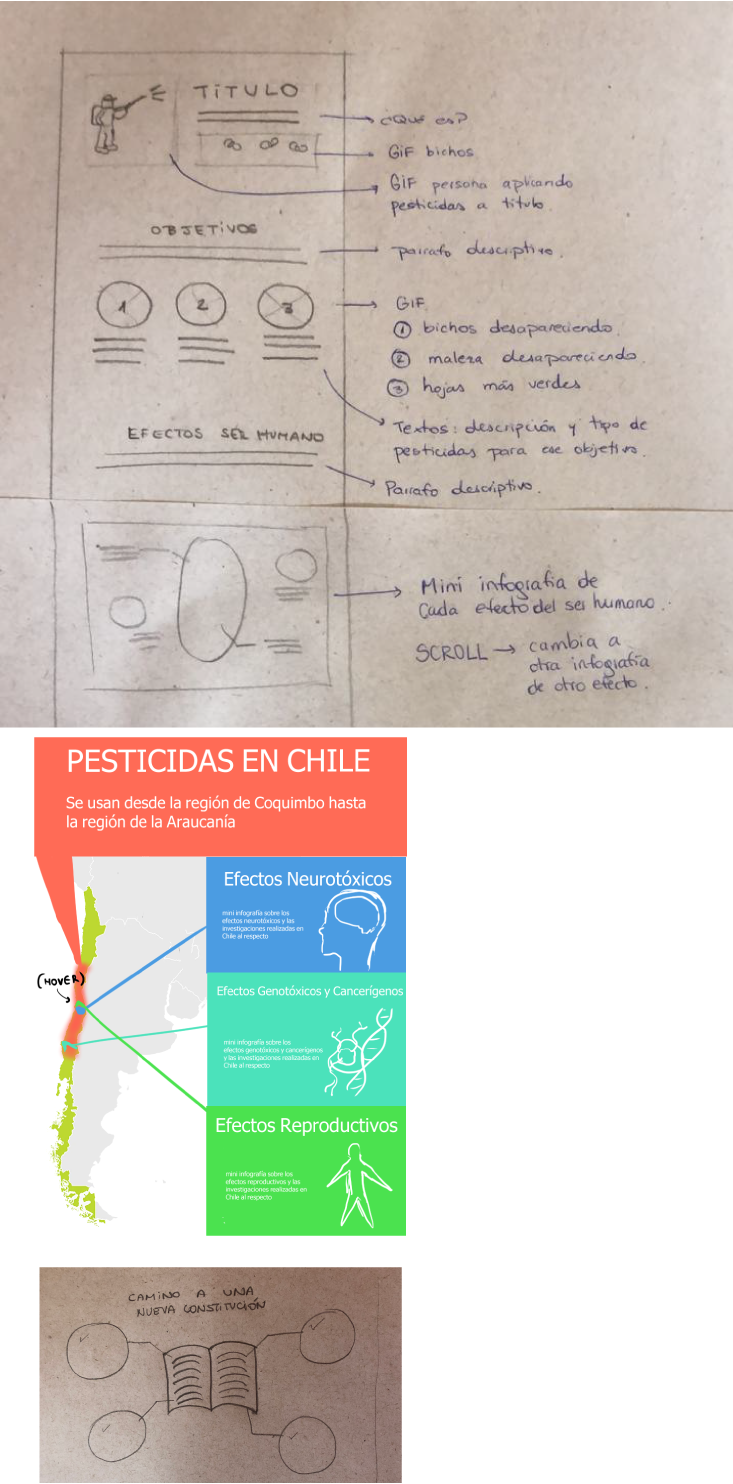 TÍTULO
¿Qué es?
GIF bichos
GIF persona aplicando
pesticidas a título.
OBJETIVOS
párrafo descriptivo.
1
2
3
GIF
① bichos desapareciendo.
② maleza desapareciendo.
③ hojas más verdes
Textos: descripción y tipo de
pesticidas para ese objetivo.
EFECTOS SER HUMANO
Párrafo descriptivo.
Mini infografía de
cada efecto del ser humano.
SCROLL → cambia a
otra infografía
de otro efecto.
PESTICIDAS EN CHILE
Se usan desde la región de Coquimbo hasta
la región de la Araucanía
(HOVER)
Efectos Neurotóxicos
mini infografía sobre los
efectos neurotóxicos y las
investigaciones realizadas en
Chile al respecto
Efectos Genotóxicos y Cancerígenos
mini infografía sobre los
efectos genotóxicos y cancerígenos
y las investigaciones realizadas en
Chile al respecto
Efectos Reproductivos
mini infografía sobre los
efectos reproductivos y las
investigaciones realizadas en
Chile al respecto
CAMINO A UNA
NUEVA CONSTITUCIÓN